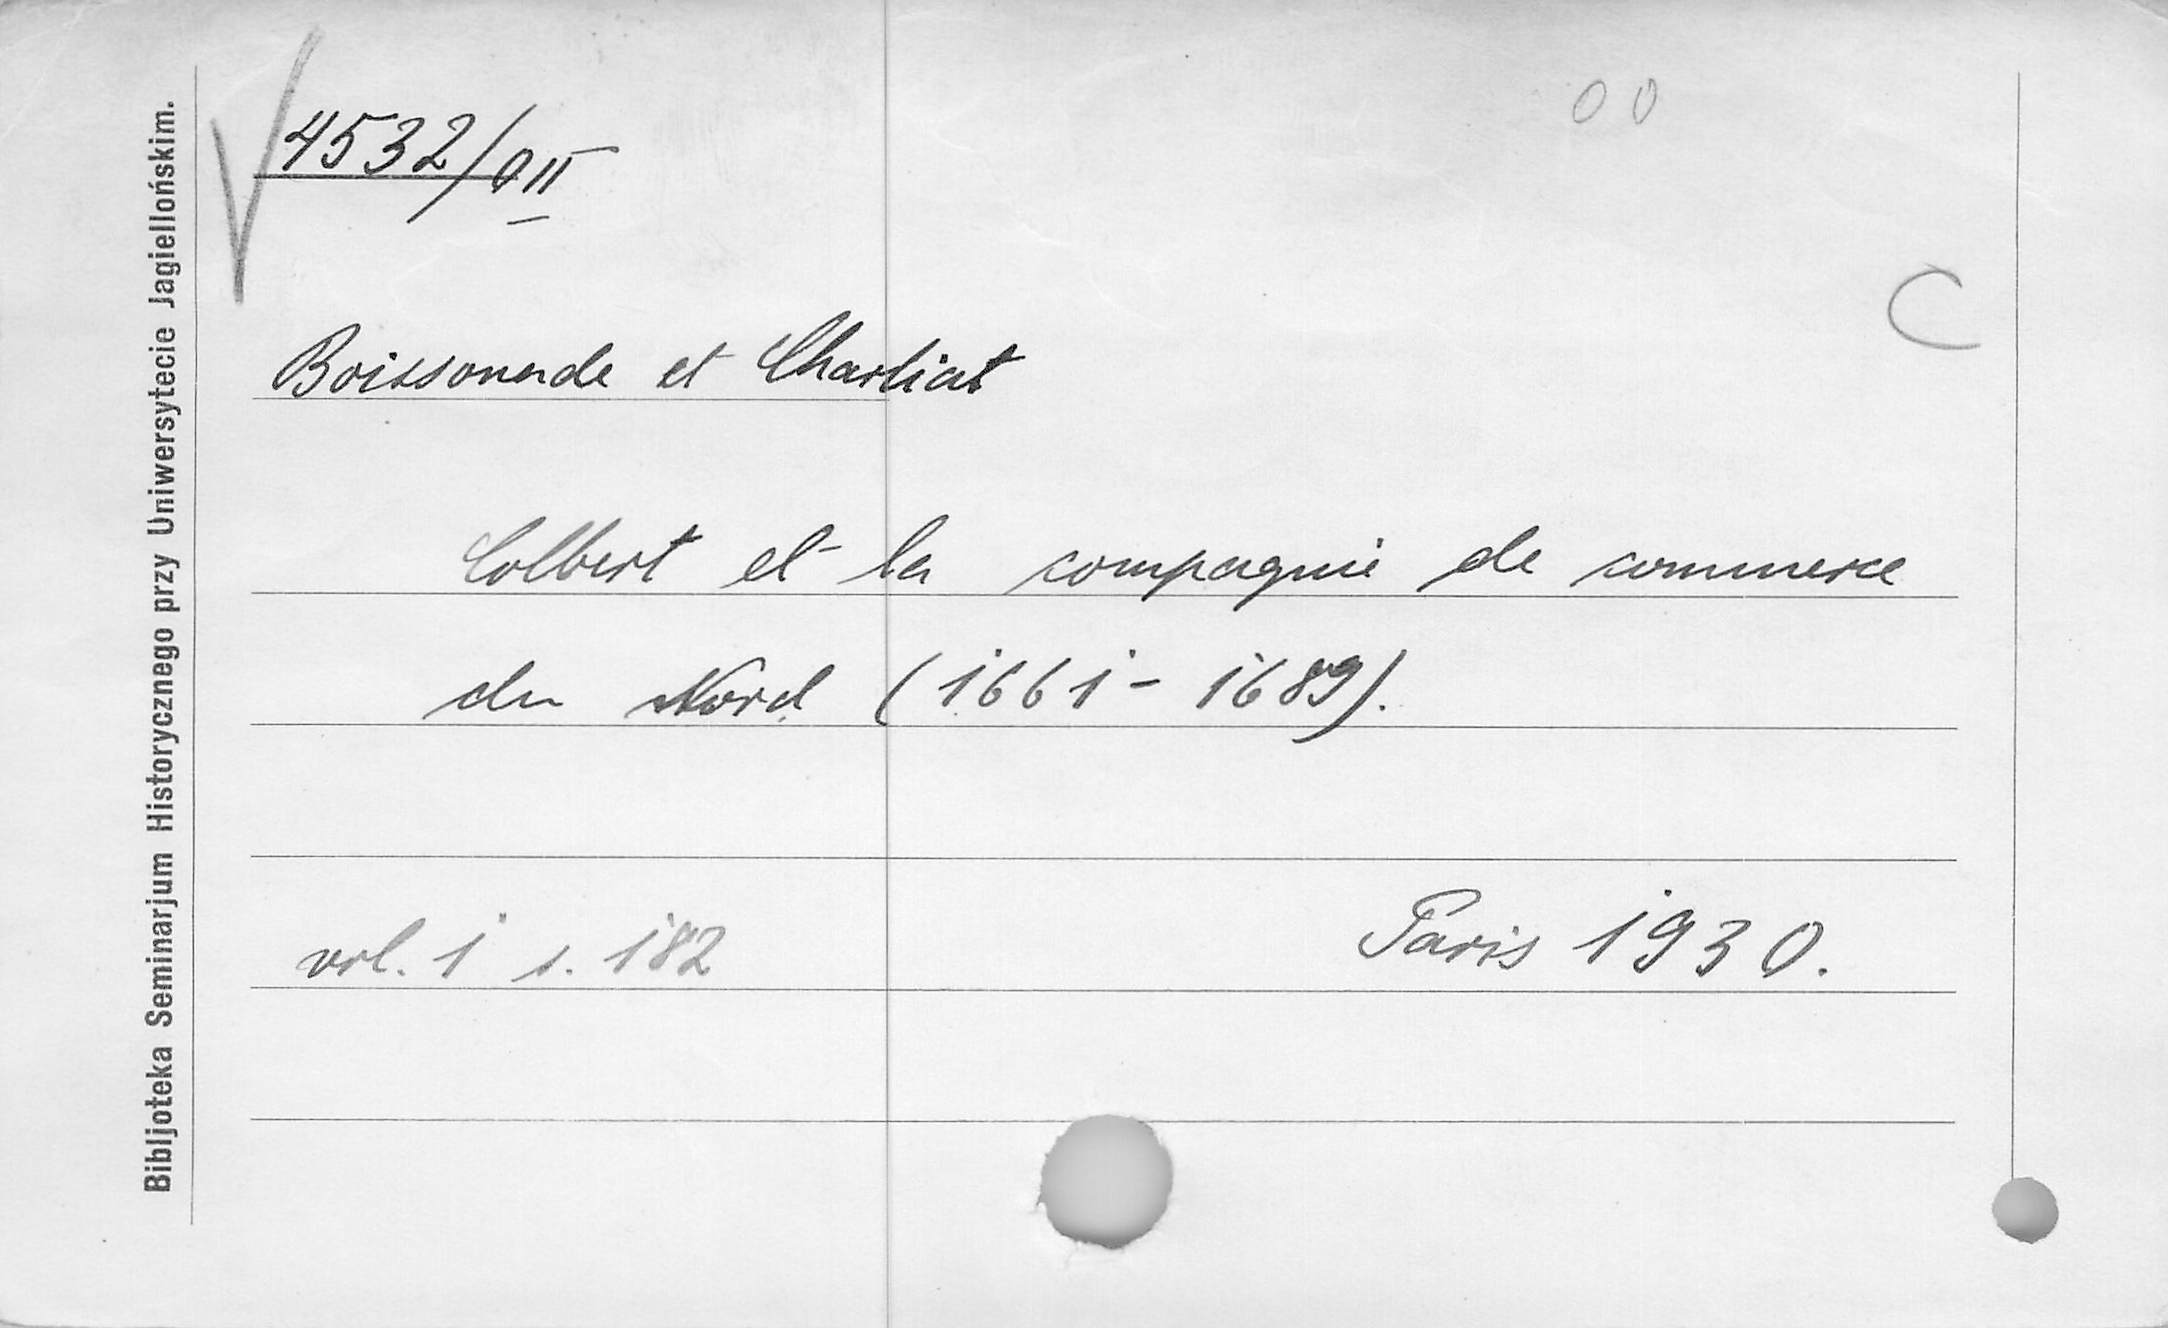 Bibljoteka Seminarjum Historycznego przy Uniwersytecie Jagiellońskim.
4532/OII
00
C
Boissonade et Charliat
Colbert et la compagnie de commerce
du Nord (1661-1689).
vol. 1 s. 182
Paris 1930.